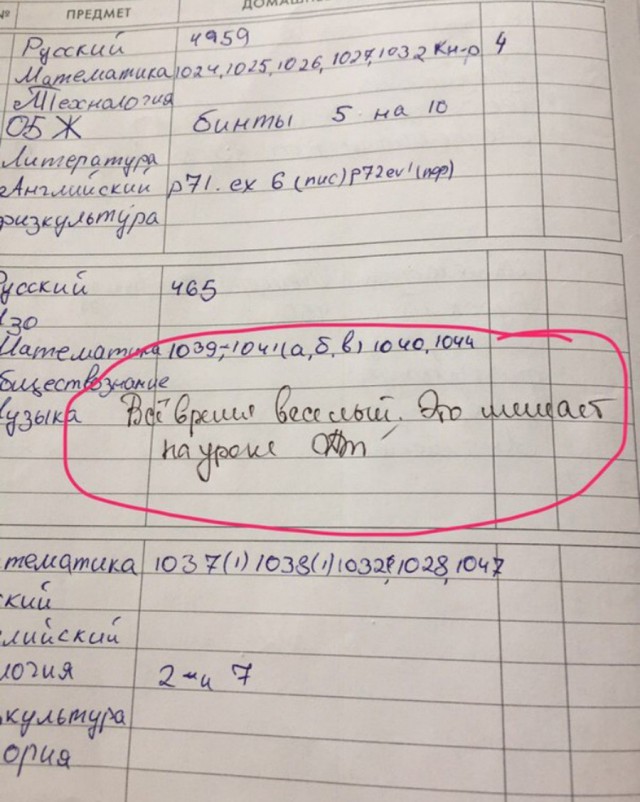 № ПРЕДМЕТ ДОМАШН
Русский 4959
Математика 1024, 1025, 1026, 1027, 1032 Кн-р 4
Техналогия
ОБЖ бинты 5 на 10
Литература
Английский р71. ex 6 (пис) р72 ex 1 (пер)
физкультура
усский 465
изо
Математика 1039, 1041 (а, б, в) 1040, 1044
бществознание
узыка Всё время веселый. Это мешает
на уроке
тематика 1037(1) 1038(1) 1032, 1028, 1047
ский
лийский
логия 2 и 7
культура
ория